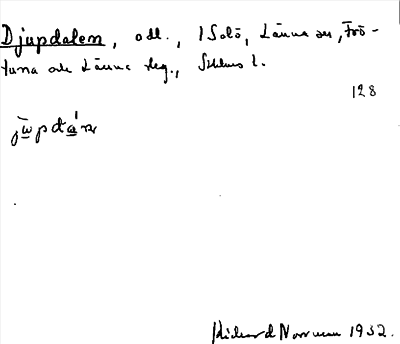 Djupdalen, odl., 1 Solö, Länna sn, Frö-
tuna och Länna skg., Sthlms l.
128
jw̄pdáɴ
Richard Norrman 1932.